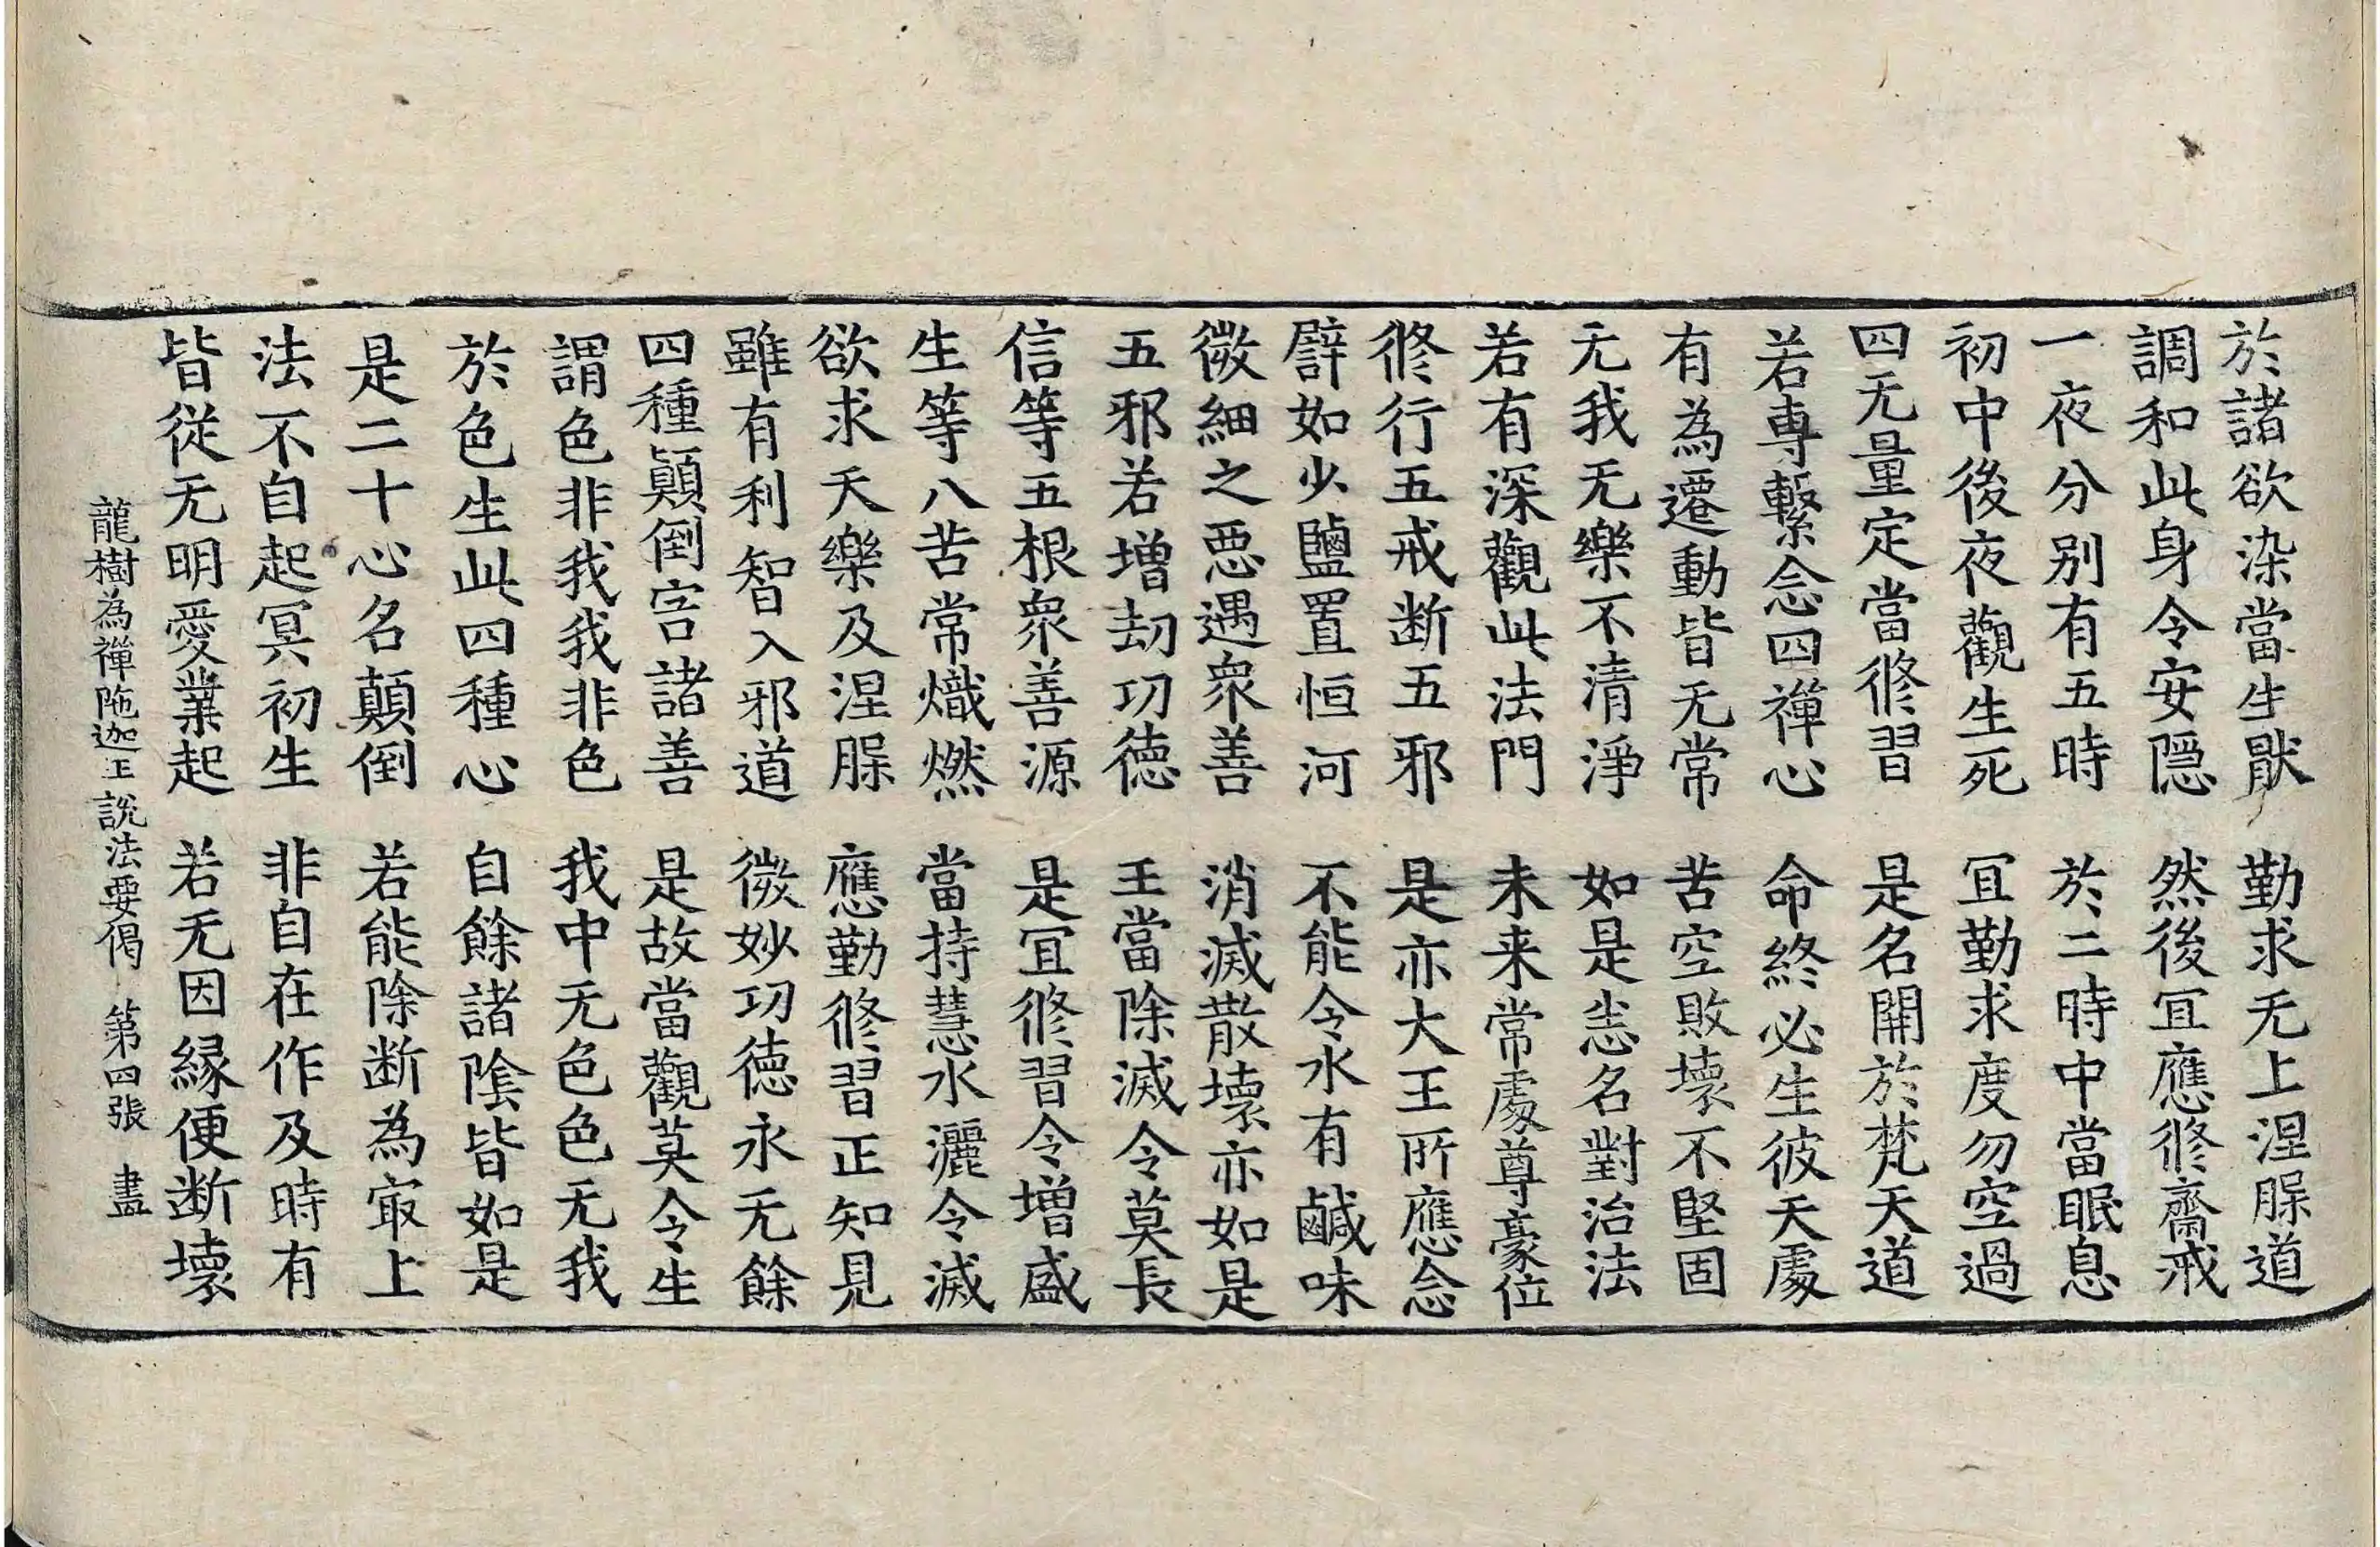 於諸欲染當生猒　勤求无上涅槃道
調和此身令安隱　然後冝應修齋戒
一夜分别有五時　於二時中當眠息
初中後夜觀生死　冝勤求度勿空過
四无量定當修習　是名開於梵天道
若專繫念四禪心　命終必生彼天處
有為遷動皆无常　苦空敗壞不堅固
无我无樂不清淨　如是悉名對治法
若有深觀此法門　未来常處尊豪位
修行五戒断五邪　是亦大王所應念
譬如少鹽置恒河　不能令水有鹹味
微細之惡遇衆善　消滅散壞亦如是
五邪若增劫功德　王當除滅令莫長
信等五根衆善源　是冝修習令增盛
生等八苦常熾燃　當持慧水灑令滅
欲求天樂及涅槃　應勤修習正知見
雖有利智入邪道　微妙功德永无餘
四種顛倒害諸善　是故當觀莫令生
謂色非我我非色　我中无色色无我
於色生此四種心　自餘諸陰皆如是
是二十心名顛倒　若能除断為㝡上
法不自起冥初生　非自在作及時有
皆從无明愛業起　若无因縁便断壞
龍樹為禪陁迦王說法要偈　第四張　盡